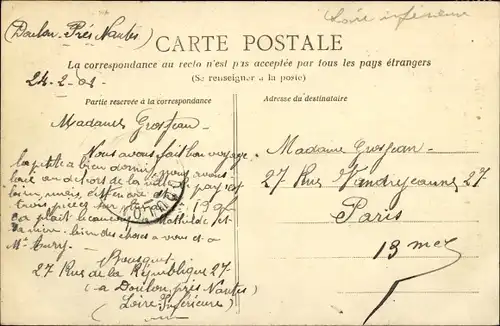 (Doulon-Prés Nantes)
Loire inférieure
CARTE POSTALE
La correspondance au recto n'est pas acceptée par tous les pays étrangers
(Se renseigner à la poste)
Partie reservée à la correspondance
Adresse du destinataire
Madame Grosjean
Nous avons fait bon voyage,
la petite a bien dormi, nous avons
en dehors de la ville
trois pièces
Mathilde et
bien des choses a vous et a
Bousquet
27 Rue de la République 27
(a Doulon, près Nantes)
(Loire-Inférieure)
Madame Grosjean
27 Rue Vandrezanne 27
Paris
13me